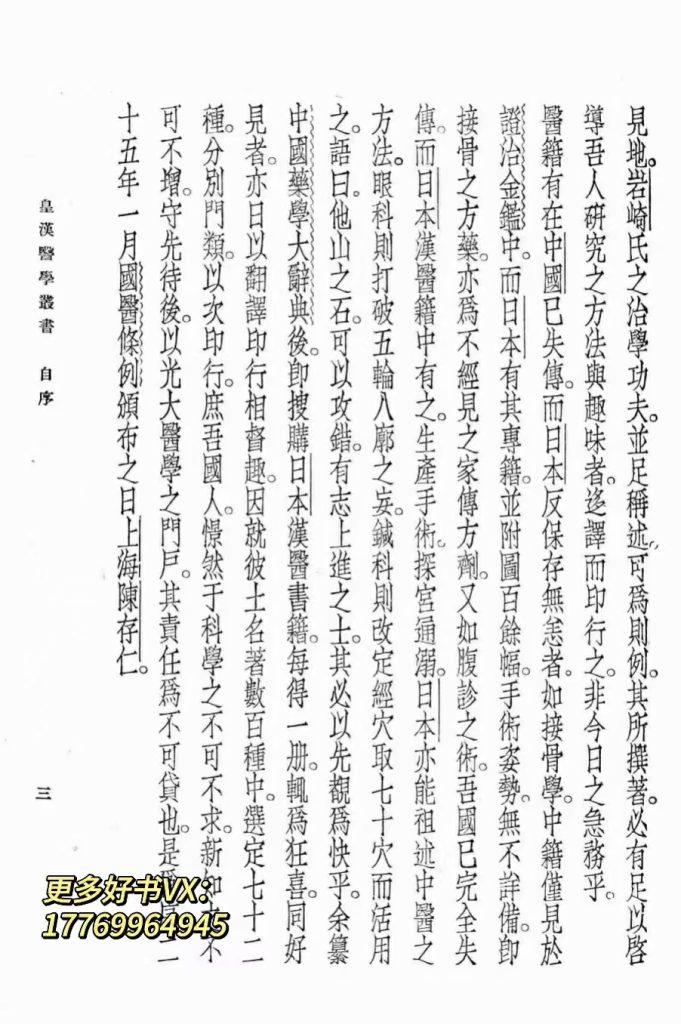 見地。岩崎氏之治學功夫。並足稱述。可爲則例。其所撰著。必有足以啓
導吾人研究之方法與趣味者。迻譯而印行之。非今日之急務乎。
醫籍有在中國已失傳。而日本反保存無恙者。如接骨學。中籍僅見於
證治金鑑中。而日本有其專籍。並附圖百餘幅。手術姿勢。無不詳備。卽
接骨之方藥。亦爲不經見之家傳方劑。又如腹診之術。吾國已完全失
傳。而日本漢醫籍中有之。生產手術。探宮通溺。日本亦能祖述中醫之
方法。眼科則打破五輪八廓之妄。鍼科則改定經穴取七十穴而活用
之。語曰。他山之石。可以攻錯。有志上進之士。其必以先覩爲快乎。余纂
中國藥學大辭典後。卽搜購日本漢醫書籍。每得一册。輒爲狂喜。同好
見者。亦日以翻譯印行相督趣。因就彼土名著數百種中。選定七十二
種。分別門類。以次印行。庶吾國人。憬然于科學之不可不求。新知之不
可不增。守先待後。以光大醫學之門戶。其責任爲不可貸也。是爲序二
十五年一月國醫條例頒布之日上海陳存仁。
皇漢醫學叢書 自序
三
更多好书VX:
17769964945